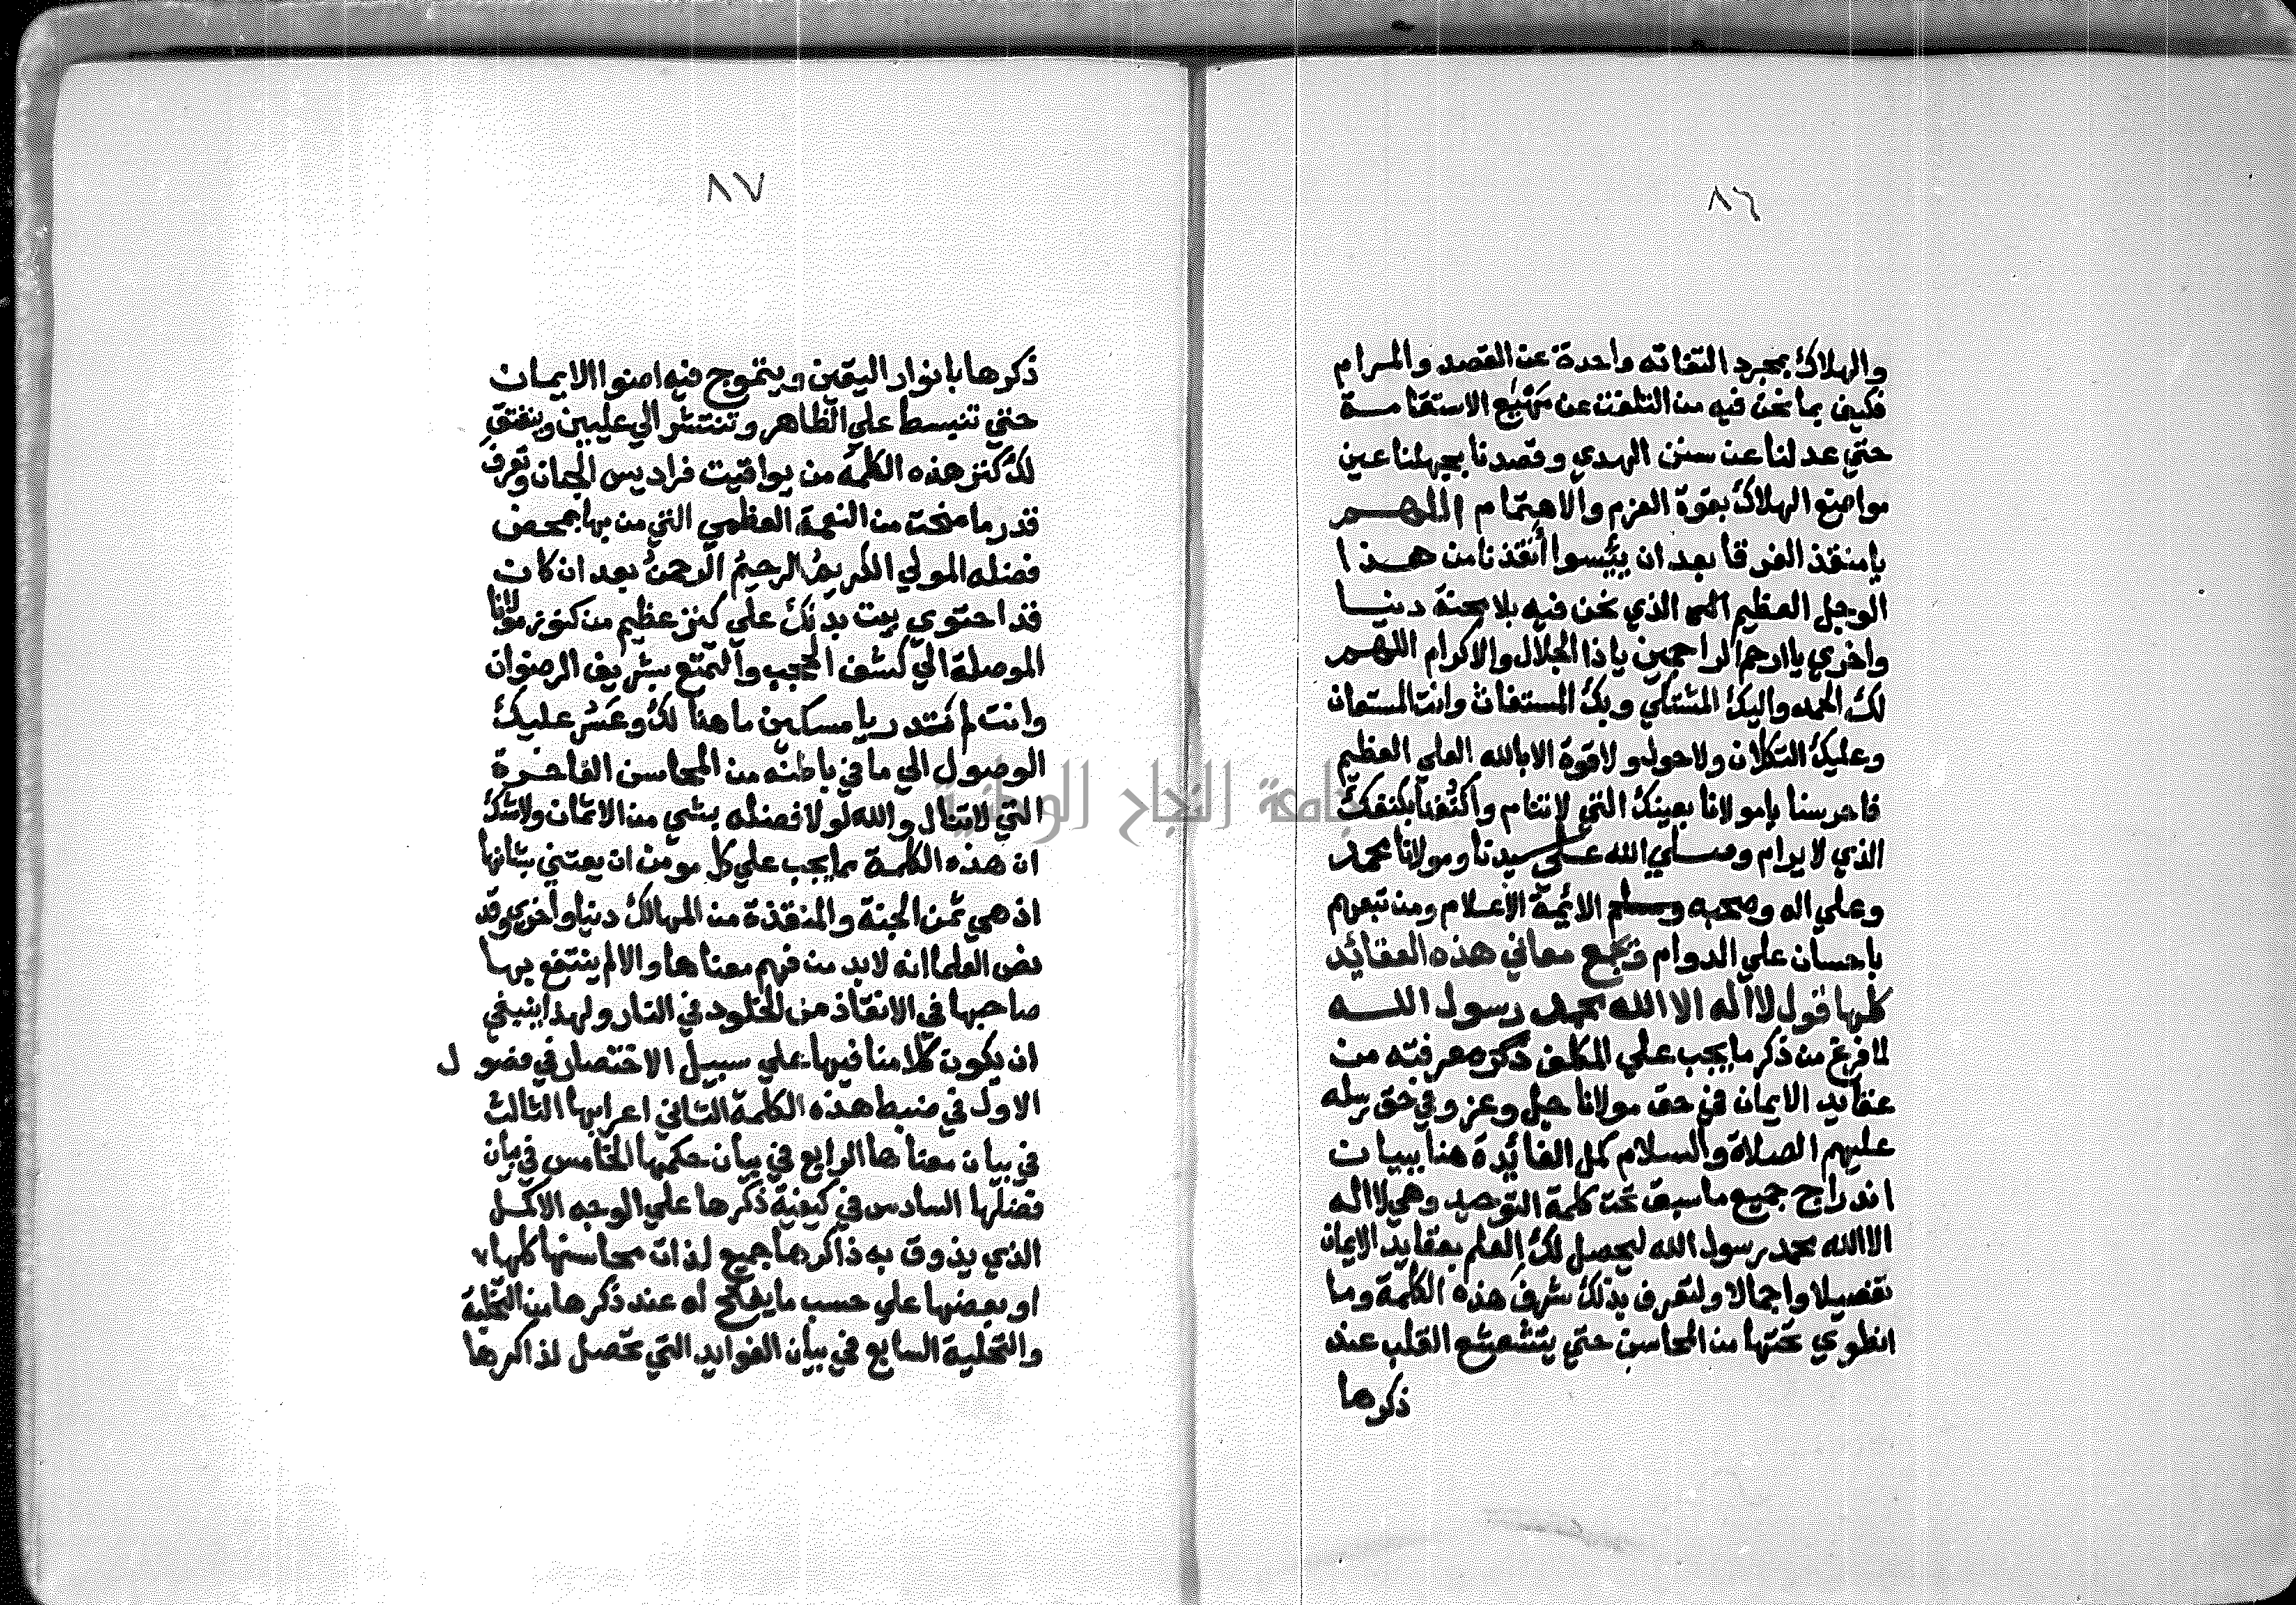 ٨٦
والهلاك بمجرد التفاته واحدة عن القصد والمرام
فكيف بما نحن فيه من التلفت عن مهيع الاستقامة
حتي عدلنا عن سنن الهدي وقصدنا بجهلنا عين
مواضع الهلاك بقوة العزم والاهتمام اللهم
يا منقذ الغرقا بعد ان ييسوا أنقذنا من هذا
الوحل العظيم الذي نحن فيه بلا محنة دنيا
واخري يا ارحم الراحمين يا ذا الجلال والاكرام اللهم
لك الحمد واليك المشتكي وبك المستغاث وانت المستعان
وعليك التكلان ولا حول ولا قوة الا بالله العلي العظيم
فاحرسنا يا مولانا بعينك التي لا تنام واكنفنا بكنفك
الذي لا يرام وصلي الله علي سيدنا ومولانا محمد
وعلي اله وصحبه وسلم الائمة الاعلام ومن تبعهم
باحسان علي الدوام ويجمع معاني هذه العقائد
كلها قول لا اله الا الله محمد رسول الله
لما فرغ من ذكر ما يجب علي المكلف معرفته من
عقايد الايمان في حق مولانا جل وعز وفي حق رسله
عليهم الصلاة والسلام كمل الفائدة هنا ببيان
اندراج جميع ما سبق تحت كلمة التوحيد وهي لا اله
الا الله محمد رسول الله ليحصل لك العلم بعقايد الايمان
تفصيلا واجمالا ولتعرف بذلك شرف هذه الكلمة وما
انطوي تحتها من المحاسن حتي يتشعشع القلب عند
ذكرها
٨٧
ذكرها بانوار اليقين ويتموج فيه اضوا الايمان
حتي تنبسط علي الظاهر وتنتشر الي عليين وينفتق
لك كنز هذه الكلمة من يواقيت فراديس الجنان وتعرف
قدر ما منحت من النعمة العظمي التي من بها بمحض
فضله المولي الكريم الرحيم الرحمن بعد ان كان
قد احتوي بيت بدنك علي كنز عظيم من كنوز مولانا
الموصلة الي كشف الحجب والتمتع بشريف الرضوان
وانت لم تدر يا مسكين ما هنا لك وعسر عليك
الوصول الي ما في باطنه من المحاسن الفاخرة
التي لا تنال والله لولا فضله بشي من الاثمان ولا شك
ان هذه الكلمة مما يجب علي كل مومن ان يعتني بشانها
اذ هي ثمن الجنة والمنقذة من المهالك دنيا واخري وقد
نص العلما انه لا بد من فهم معناها والا لم ينتفع بها
صاحبها في الانقاذ من الخلود في النار ولهذا ينبغي
ان يكون كلامنا فيها علي سبيل الاختصار في فصول
الاول في ضبط هذه الكلمة الثاني اعرابها الثالث
في بيان معناها الرابع في بيان حكمها الخامس في بيان
فضلها السادس في كيفية ذكرها علي الوجه الاكمل
الذي يذوق به ذاكرها جميع لذات محاسنها كلها
او بعضها علي حسب ما يفتح له عند ذكرها من التخلية
والتحلية السابع في بيان الفوايد التي تحصل لذاكرها
جامعة النجاح الوطنية